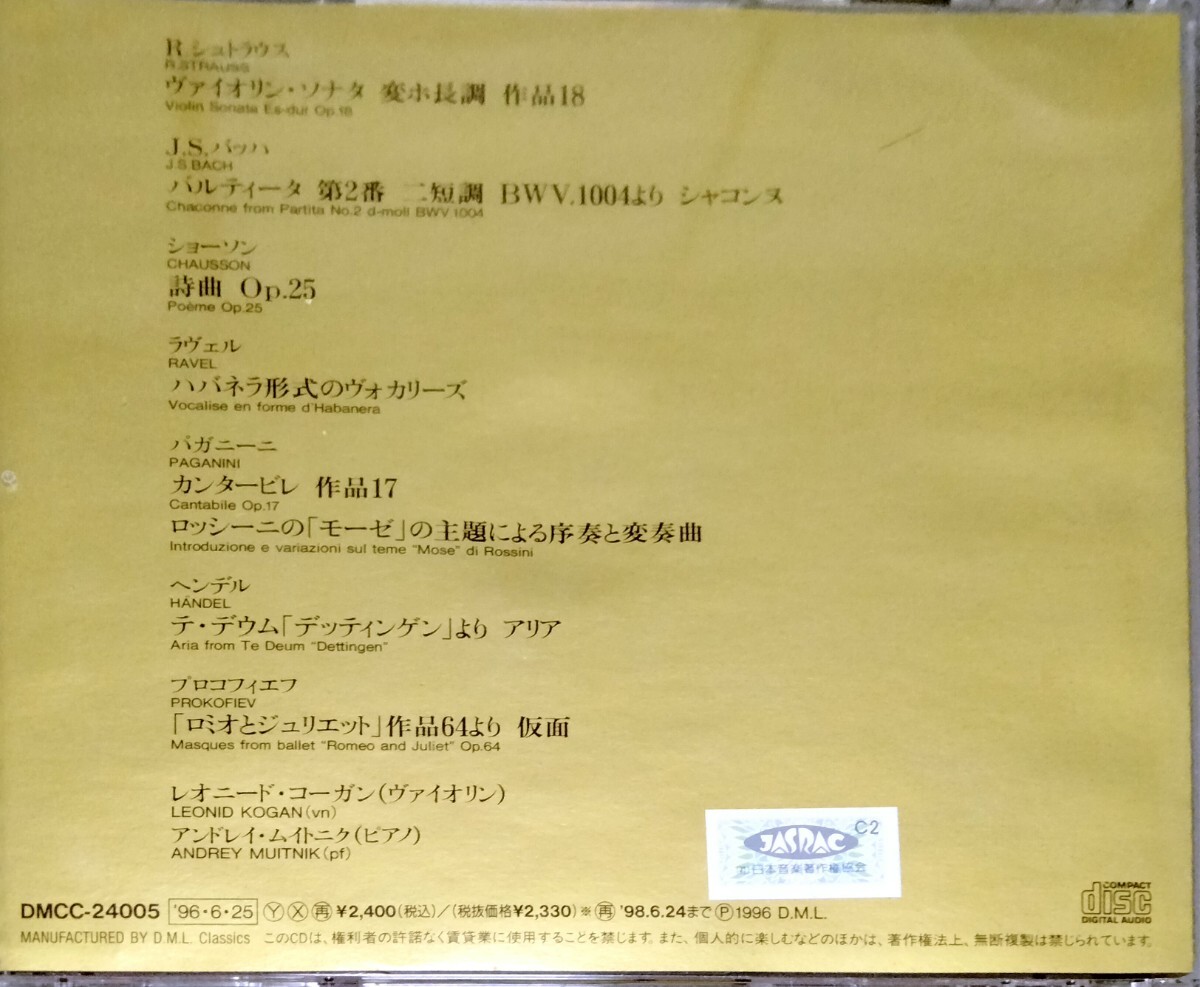 R.シュトラウス
R.STRAUSS
ヴァイオリン・ソナタ 変ホ長調 作品18
Violin Sonata Es-dur Op.18
J.S.バッハ
J.S.BACH
パルティータ 第2番 ニ短調 BWV.1004より シャコンヌ
Chaconne from Partita No.2 d-moll BWV.1004
ショーソン
CHAUSSON
詩曲 Op.25
Poème Op.25
ラヴェル
RAVEL
ハバネラ形式のヴォカリーズ
Vocalise en forme d'Habanera
パガニーニ
PAGANINI
カンタービレ 作品17
Cantabile Op.17
ロッシーニの「モーゼ」の主題による序奏と変奏曲
Introduzione e variazioni sul teme "Mose" di Rossini
ヘンデル
HÄNDEL
テ・デウム「デッティンゲン」より アリア
Aria from Te Deum "Dettingen"
プロコフィエフ
PROKOFIEV
「ロミオとジュリエット」作品64より 仮面
Masques from ballet "Romeo and Juliet" Op.64
レオニード・コーガン(ヴァイオリン)
LEONID KOGAN(vn)
アンドレイ・ムイトニク(ピアノ)
ANDREY MUITNIK(pf)
C2
JASRAC
日本音楽著作権協会
COMPACT
disc
DIGITAL AUDIO
DMCC-24005 '96・6・25 Ⓨ Ⓧ 再 ¥2,400(税込)/(税抜価格¥2,330)※再 '98.6.24まで Ⓟ1996 D.M.L.
MANUFACTURED BY D.M.L. Classics このCDは、権利者の許諾なく賃貸業に使用することを禁じます。また、個人的に楽しむなどのほかは、著作権法上、無断複製は禁じられています。